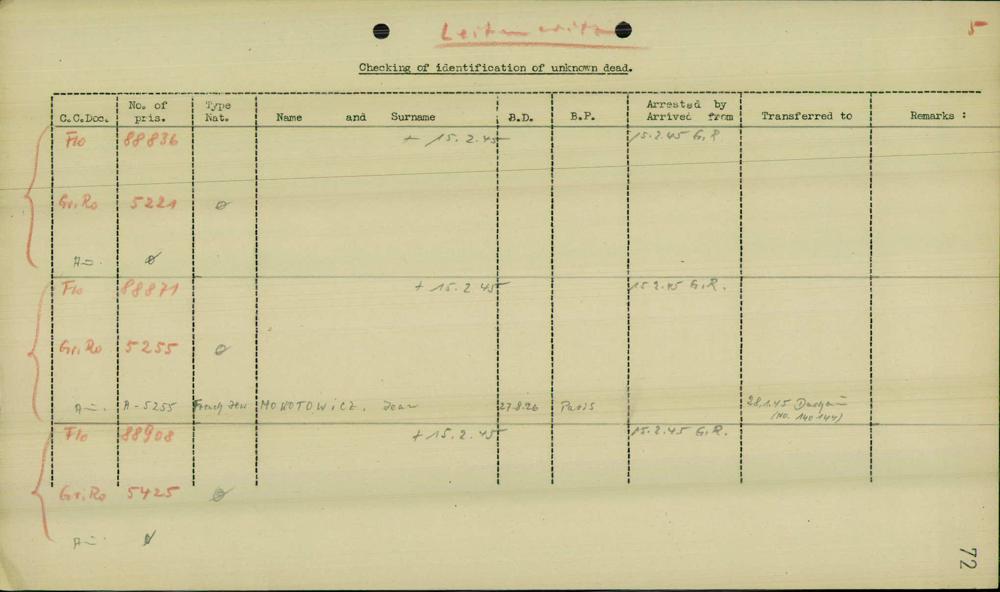 Leitmeritz
5
Checking of identification of unknown dead.
C.C.Doc. No. of pris. Type Nat. Name and Surname B.D. B.P. Arrested by Arrived from Transferred to Remarks :
Flo 88836 + 15.2.45 15.2.45 G.R.
Gr.Ro 5221 0
A=. 0
Flo 88871 + 15.2.45 15.2.45 G.R.
Gr.Ro 5255 0
A=. A-5255 French Jew Jean 27.8.26 Paris 28.1.45 Dachau
(No. 140144)
Flo 88908 + 15.2.45 15.2.45 G.R.
Gr.Ro 5425 0
A=. 0
72